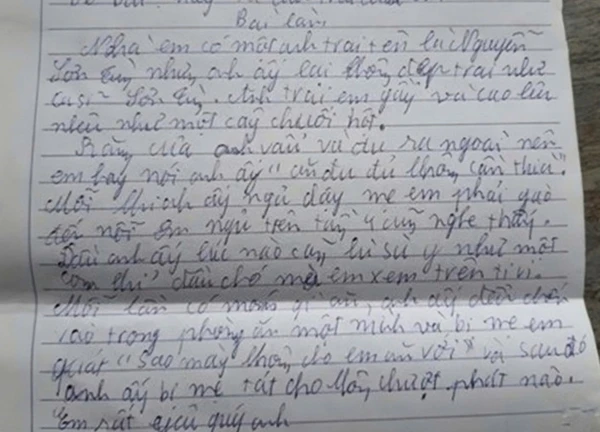 Bài làm
Nhà em có một anh trai tên là Nguyễn
Sơn Tùng nhưng anh ấy lại không đẹp trai như
ca sĩ Sơn Tùng. Anh trai em gầy và cao lêu
nêu như một cây chuối hột.
Răng của anh vẩu và dư ra ngoài nên
em hay nói anh ấy "ăn đu đủ không cần thìa".
Mỗi khi anh ấy ngủ dậy mẹ em phải gào
đến nỗi em ngủ trên tầng 4 cũng nghe thấy.
Đầu anh ấy lúc nào cũng lù xù y như một
con thú đầu chó mà em xem trên ti vi.
Mỗi lần có món gì ăn, anh ấy đều
vào trong phòng ăn một mình và bị mẹ em
quát "Sao mày không cho em ăn với" và sau đó
anh ấy bị mẹ tát cho không chượt phát nào.
Em rất quý anh